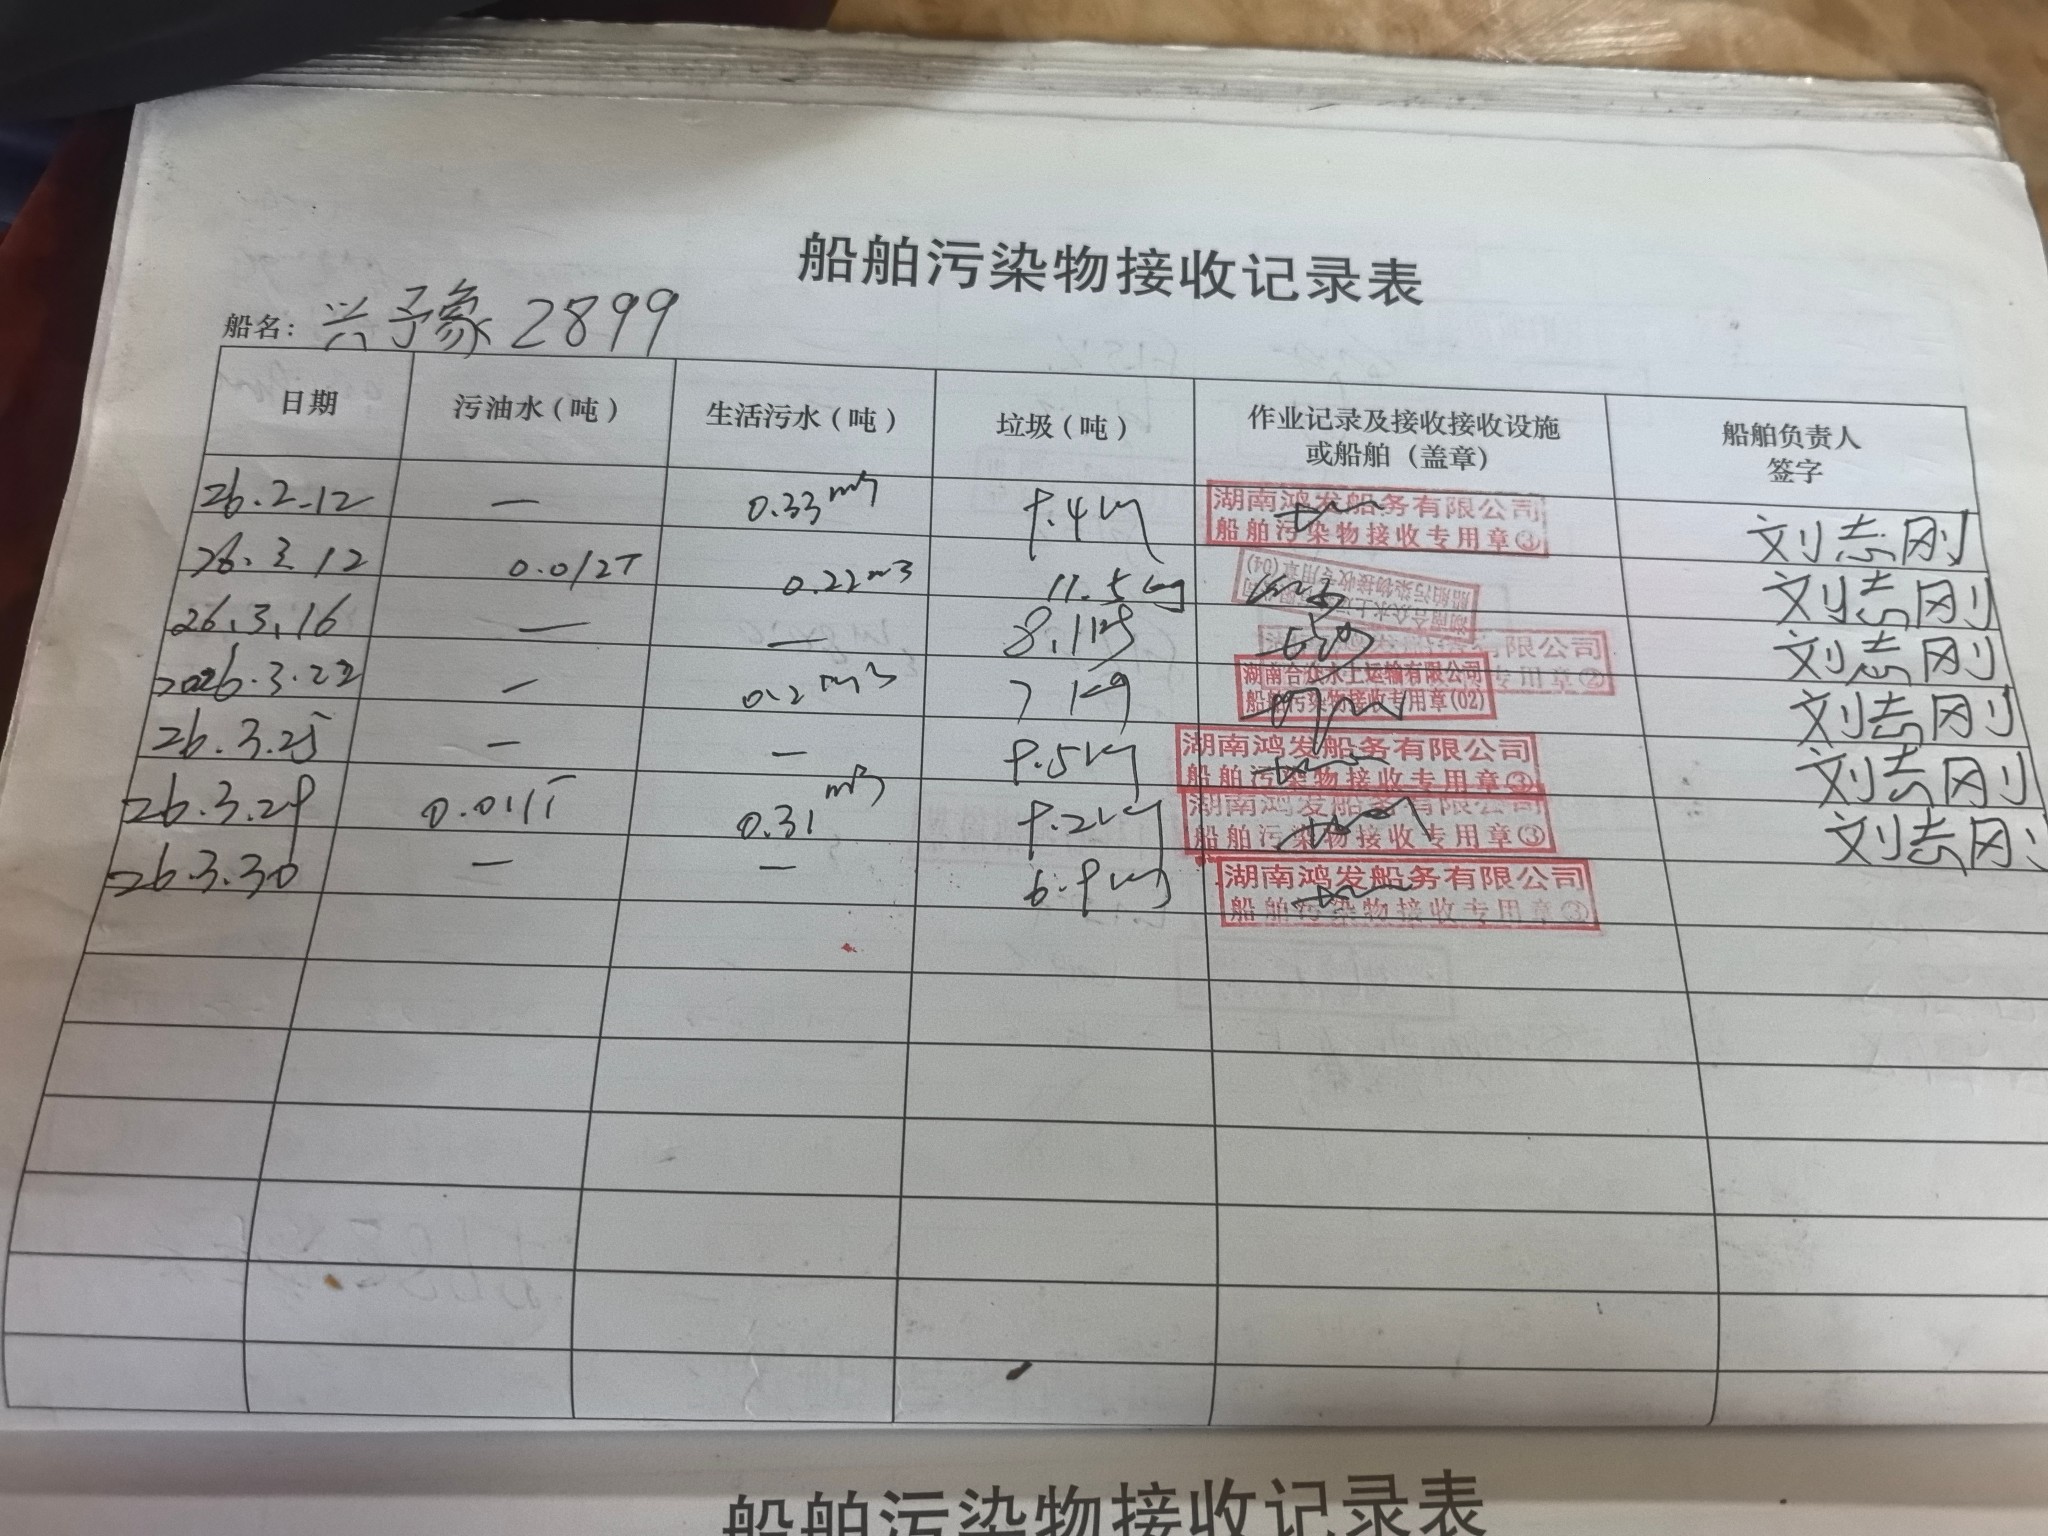 船舶污染物接收记录表
船名：兴予象2899
日期 污油水（吨） 生活污水（吨） 垃圾（吨） 作业记录及接收接收设施或船舶（盖章） 船舶负责人签字
26.2.12 — 0.33m³ 9.4kg 湖南鸿发船务有限公司 船舶污染物接收专用章③ 刘志刚
26.3.12 0.012T 0.22m3 11.5kg 船舶污染物接收专用章(04) 刘志刚
26.3.16 — — 8.1kg 有限公司 专用章② 刘志刚
2026.3.22 — 0.2m3 7kg 湖南合众水上运输有限公司 船舶污染物接收专用章(02) 刘志刚
26.3.25 — — 9.5kg 湖南鸿发船务有限公司 船舶污染物接收专用章③ 刘志刚
26.3.29 0.011T 0.31m3 9.2kg 湖南鸿发船务有限公司 船舶污染物接收专用章③ 刘志刚
26.3.30 — — 6.9kg 湖南鸿发船务有限公司 船舶污染物接收专用章③
船舶污染物接收记录表